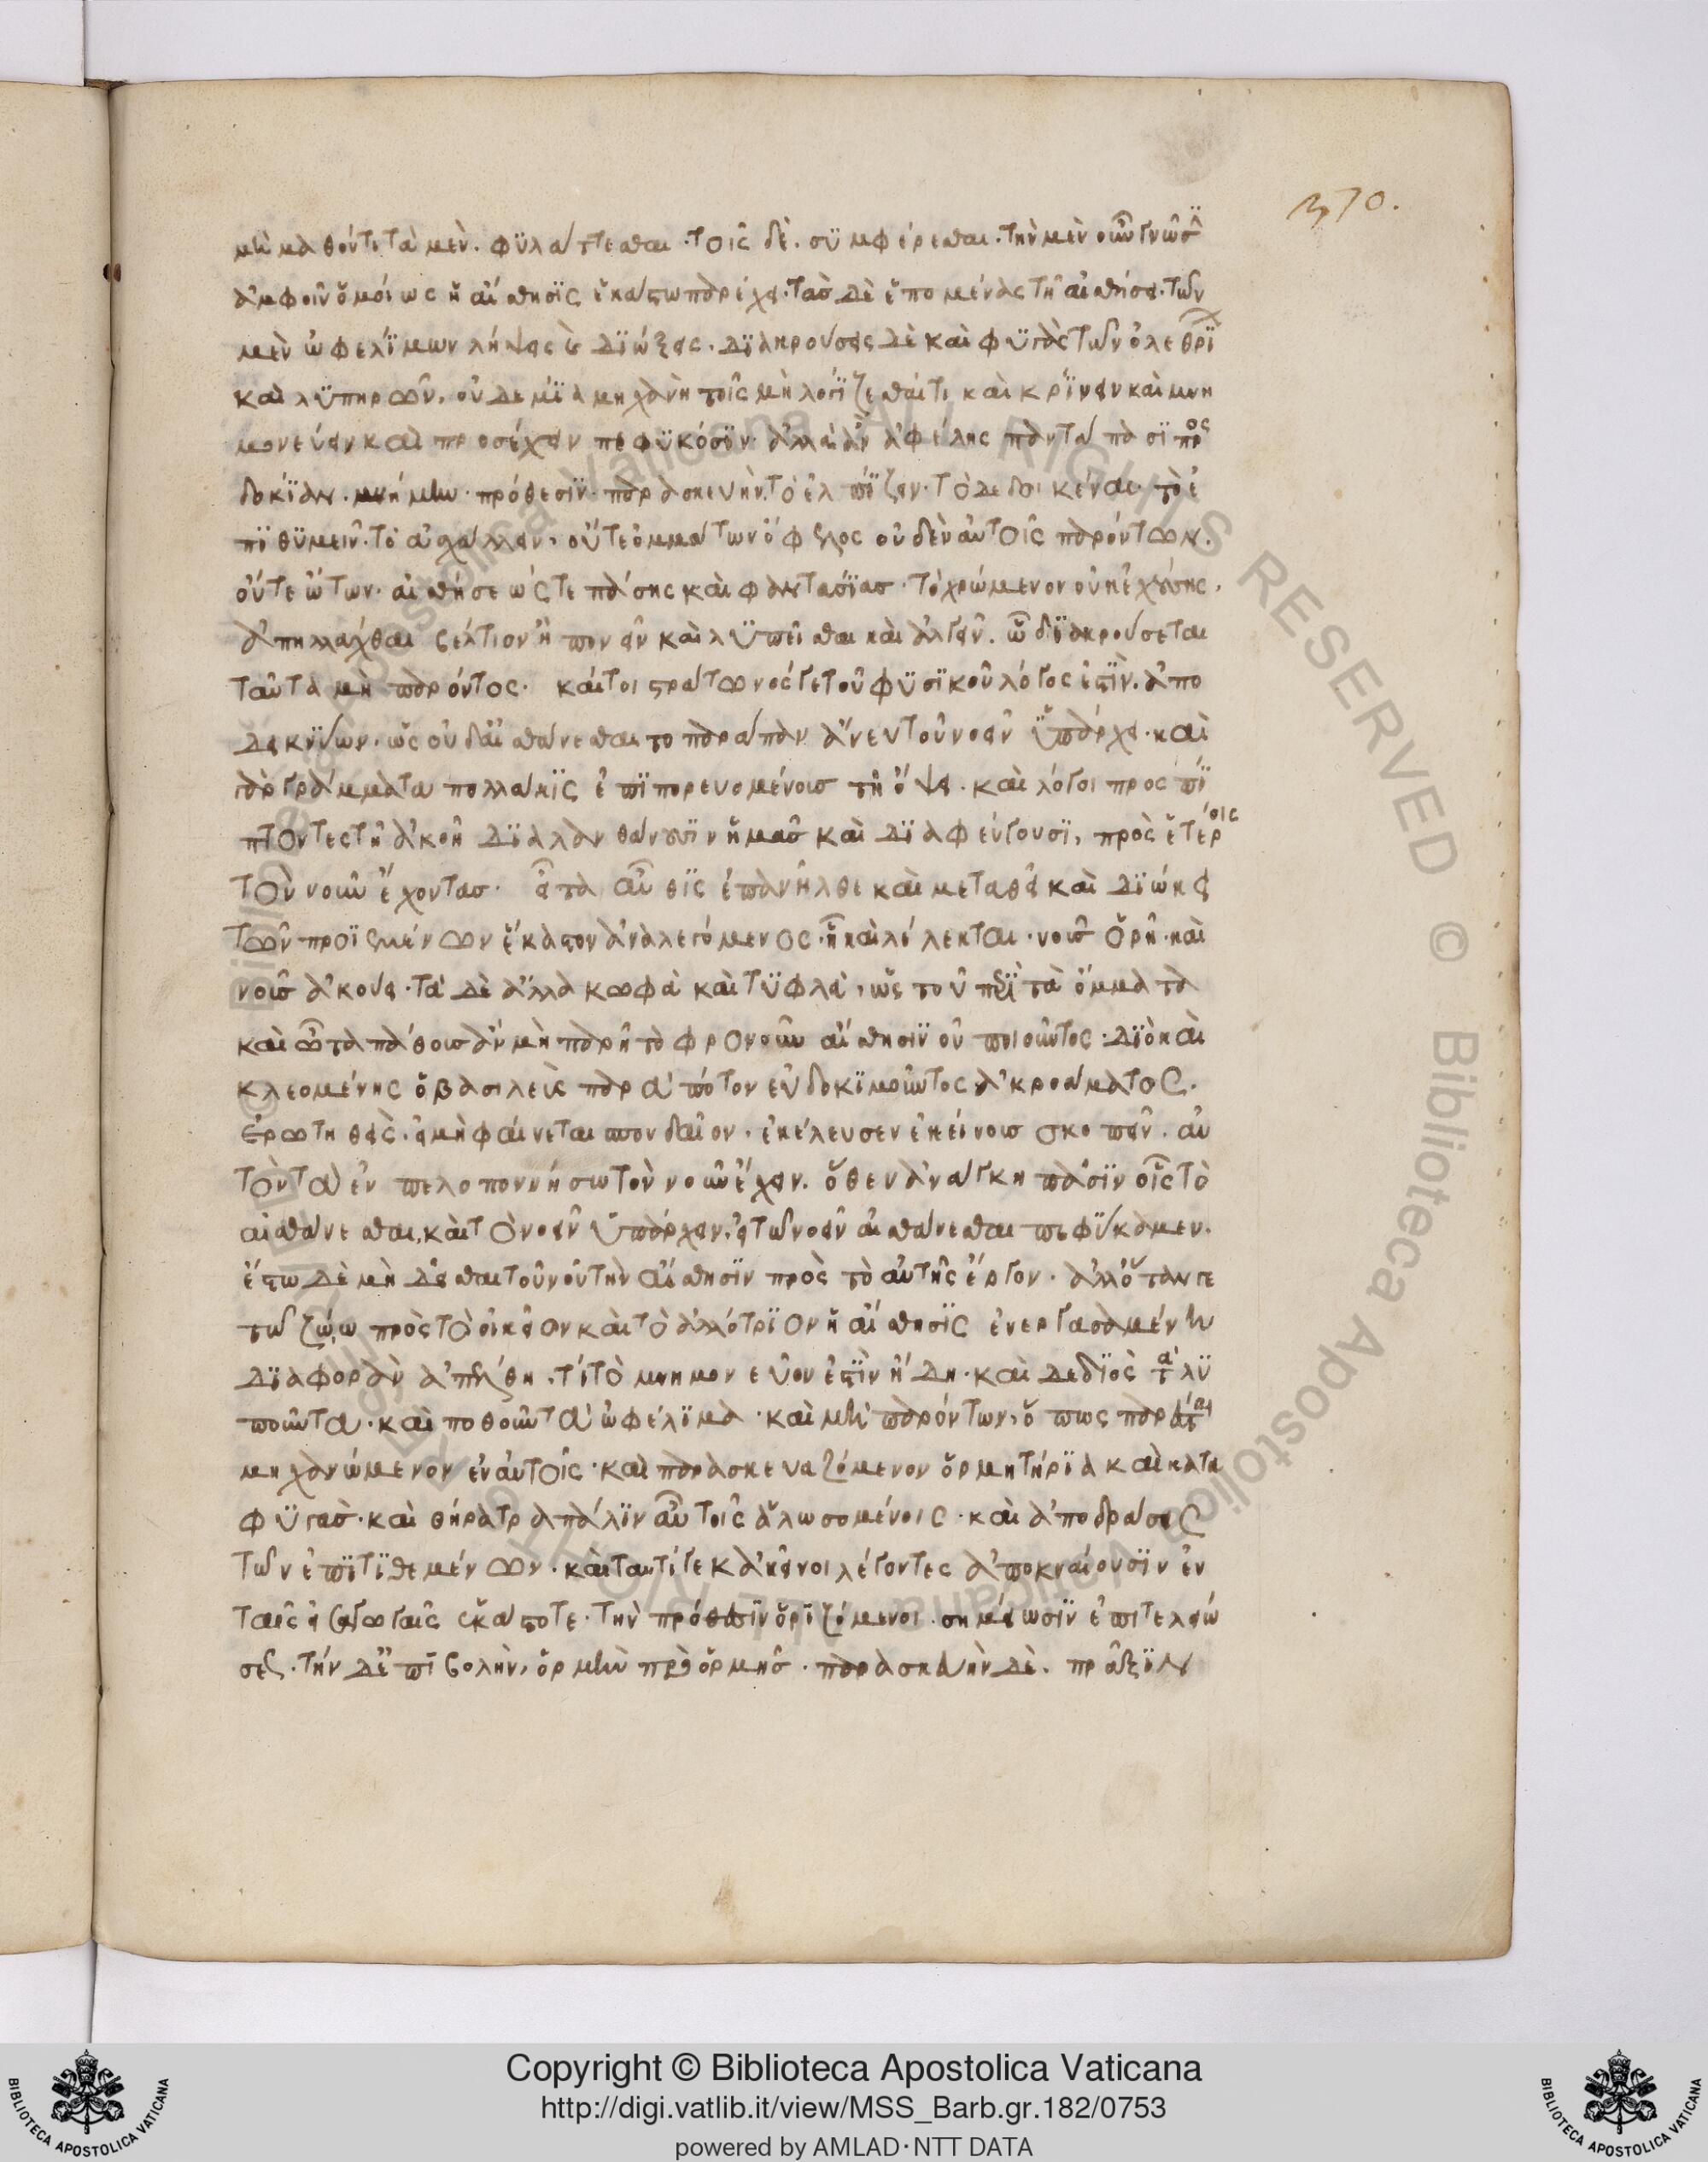 370.
μὴ μαθόντι τὰ μὲν. φϋλάττεσθαι. τοῖς δὲ. συμφέρεσθαι. τὴν μὲν οὖν γνῶσϊν
ἀμφοῖν ὁμοίως ἡ αἴσθησϊς ἑκάστω παρέχει. τὰσ δὲ ἑπομένας τῆ αἰσθήσει. τῶν
μὲν ὠφελΐμων λήψεις καὶ διώξεις. διακρούσεις δὲ καὶ φϋγὰς τῶν ὀλεθρΐων
καὶ λϋπηρῶν. οὐδεμία μηχανὴ τοῖς μὴ λογΐζεσθαί τι καὶ κρΐνειν καὶ μνη
μονεύειν καὶ προσέχειν πεφϋκόσϊν. ἀλλὰ ἂν ἀφέλης πάντα πᾶσϊ προσ
δοκΐαν. μνήμην. πρόθεσιν. παρασκευὴν. τὸ ἐλπΐζειν. τὸ δεδοικέναι. τὸ ἐ
πϊθϋμεῖν. τὸ ἀσχάλλειν, οὔτε ὀμμάτων ὄφελος οὐδὲν αὐτοῖς παρόντων.
οὔτε ὤτων. αἰσθήσεώς τε πάσης καὶ φαντασΐασ. τὸ χρώμενον οὐκ ἐχούσης.
ἀπηλλάχθαι βέλτιον ἢ πονεῖν καὶ λϋπεῖσθαι καὶ ἀλγεῖν. ὧ διακρούσεται
ταῦτα μὴ παρόντος. καίτοι στράτωνός γε τοῦ φϋσϊκοῦ λόγος ἐστΐν. ἀπο
δεικνύων. ὡς οὐδ αἰσθάνεσθαι τοπαράπαν ἄνευ τοῦ νοεῖν ὑπάρχει. καὶ
γὰρ γράμματα πολλάκϊς ἐπϊπορευομένουσ τῆ ὄψει. καὶ λόγοι προσπΐ
πτοντες τῆ ἀκοῆ διαλανθάνουσϊν ἡμᾶσ καὶ διαφεύγουσϊ, πρὸς ἑτέροις
τὸν νοῦν ἔχοντασ. εἶτα αὖθϊς ἐπανῆλθε καὶ μεταθεῖ καὶ διώκει
τῶν προϊεμένων ἕκαστον ἀναλεγόμενος. ἧ καὶ λέλεκται. νοῦσ ὁρῆ. καὶ
νοῦσ ἀκούει. τὰ δὲ ἄλλα κωφὰ καὶ τϋφλὰ, ὡς τοῦ περὶ τὰ ὄμματα
καὶ ὦτα πάθουσ ἂν μὴ παρῆ τὸ φρονοῦν αἴσθησιν οὐ ποιοῦντος. διὸ καὶ
κλεομένης ὁ βασιλεὺς παρὰ πότον εὐδοκϊμοῦντος ἀκροάματος.
ἐρωτηθεὶς. εἰ μὴ φαίνεται σπουδαῖον. ἐκέλευσεν ἐκείνουσ σκοπεῖν. αὐ
τὸν τὰ ἐν πελοποννήσω τὸν νοῦν ἔχειν. ὅθεν ἀνάγκη πᾶσϊν οἷς τὸ
αἰσθάνεσθαι, καὶ τὸ νοεῖν ὑπάρχειν. εἰ τῶ νοεῖν αἰσθάνεσθαι πεφύκαμεν.
ἔστω δὲ μὴ δεῖσθαι τοῦ νοῦ τὴν αἴσθησϊν πρὸς τὸ αὐτῆς ἔργον. ἀλλ ὅταν γε
τῶ ζώω πρὸς τὸ οἰκεῖον καὶ τὸ ἀλλότρϊον ἡ αἴσθησϊς ἐνεργασαμένη
διαφορὰν ἀπέλθη. τί τὸ μνημονεῦον ἐστϊν ἤδη. καὶ δεδϊὸς τὰ λϋ
ποῦντα. καὶ ποθοῦν τὰ ὠφέλϊμα. καὶ μὴ παρόντων, ὅπως παρέσται
μηχανώμενον ἐν αὐτοῖς. καὶ παρασκευαζόμενον ὁρμητήρϊα καὶ κατα
φϋγὰσ. καὶ θήρατρα πάλϊν αὖ τοῖς ἁλωσομένοις. καὶ ἀποδράσεις
τῶν ἐπϊτϊθεμένων. καὶ ταυτί γε κἀκεῖνοι λέγοντες ἀποκναίουσϊν ἐν
ταῖς εἰσαγωγαῖς ἑκάστοτε. τὴν πρόθεσϊν ὁρϊζόμενοι. σημείωσϊν ἐπιτελειώ
σεως. τὴν δὲ ἐπϊβολὴν, ὁρμὴν πρὸ ὁρμῆσ. παρασκευὴν δὲ. πρᾶξϊν
Copyright © Biblioteca Apostolica Vaticana
http://digi.vatlib.it/view/MSS_Barb.gr.182/0753
powered by AMLAD·NTT DATA